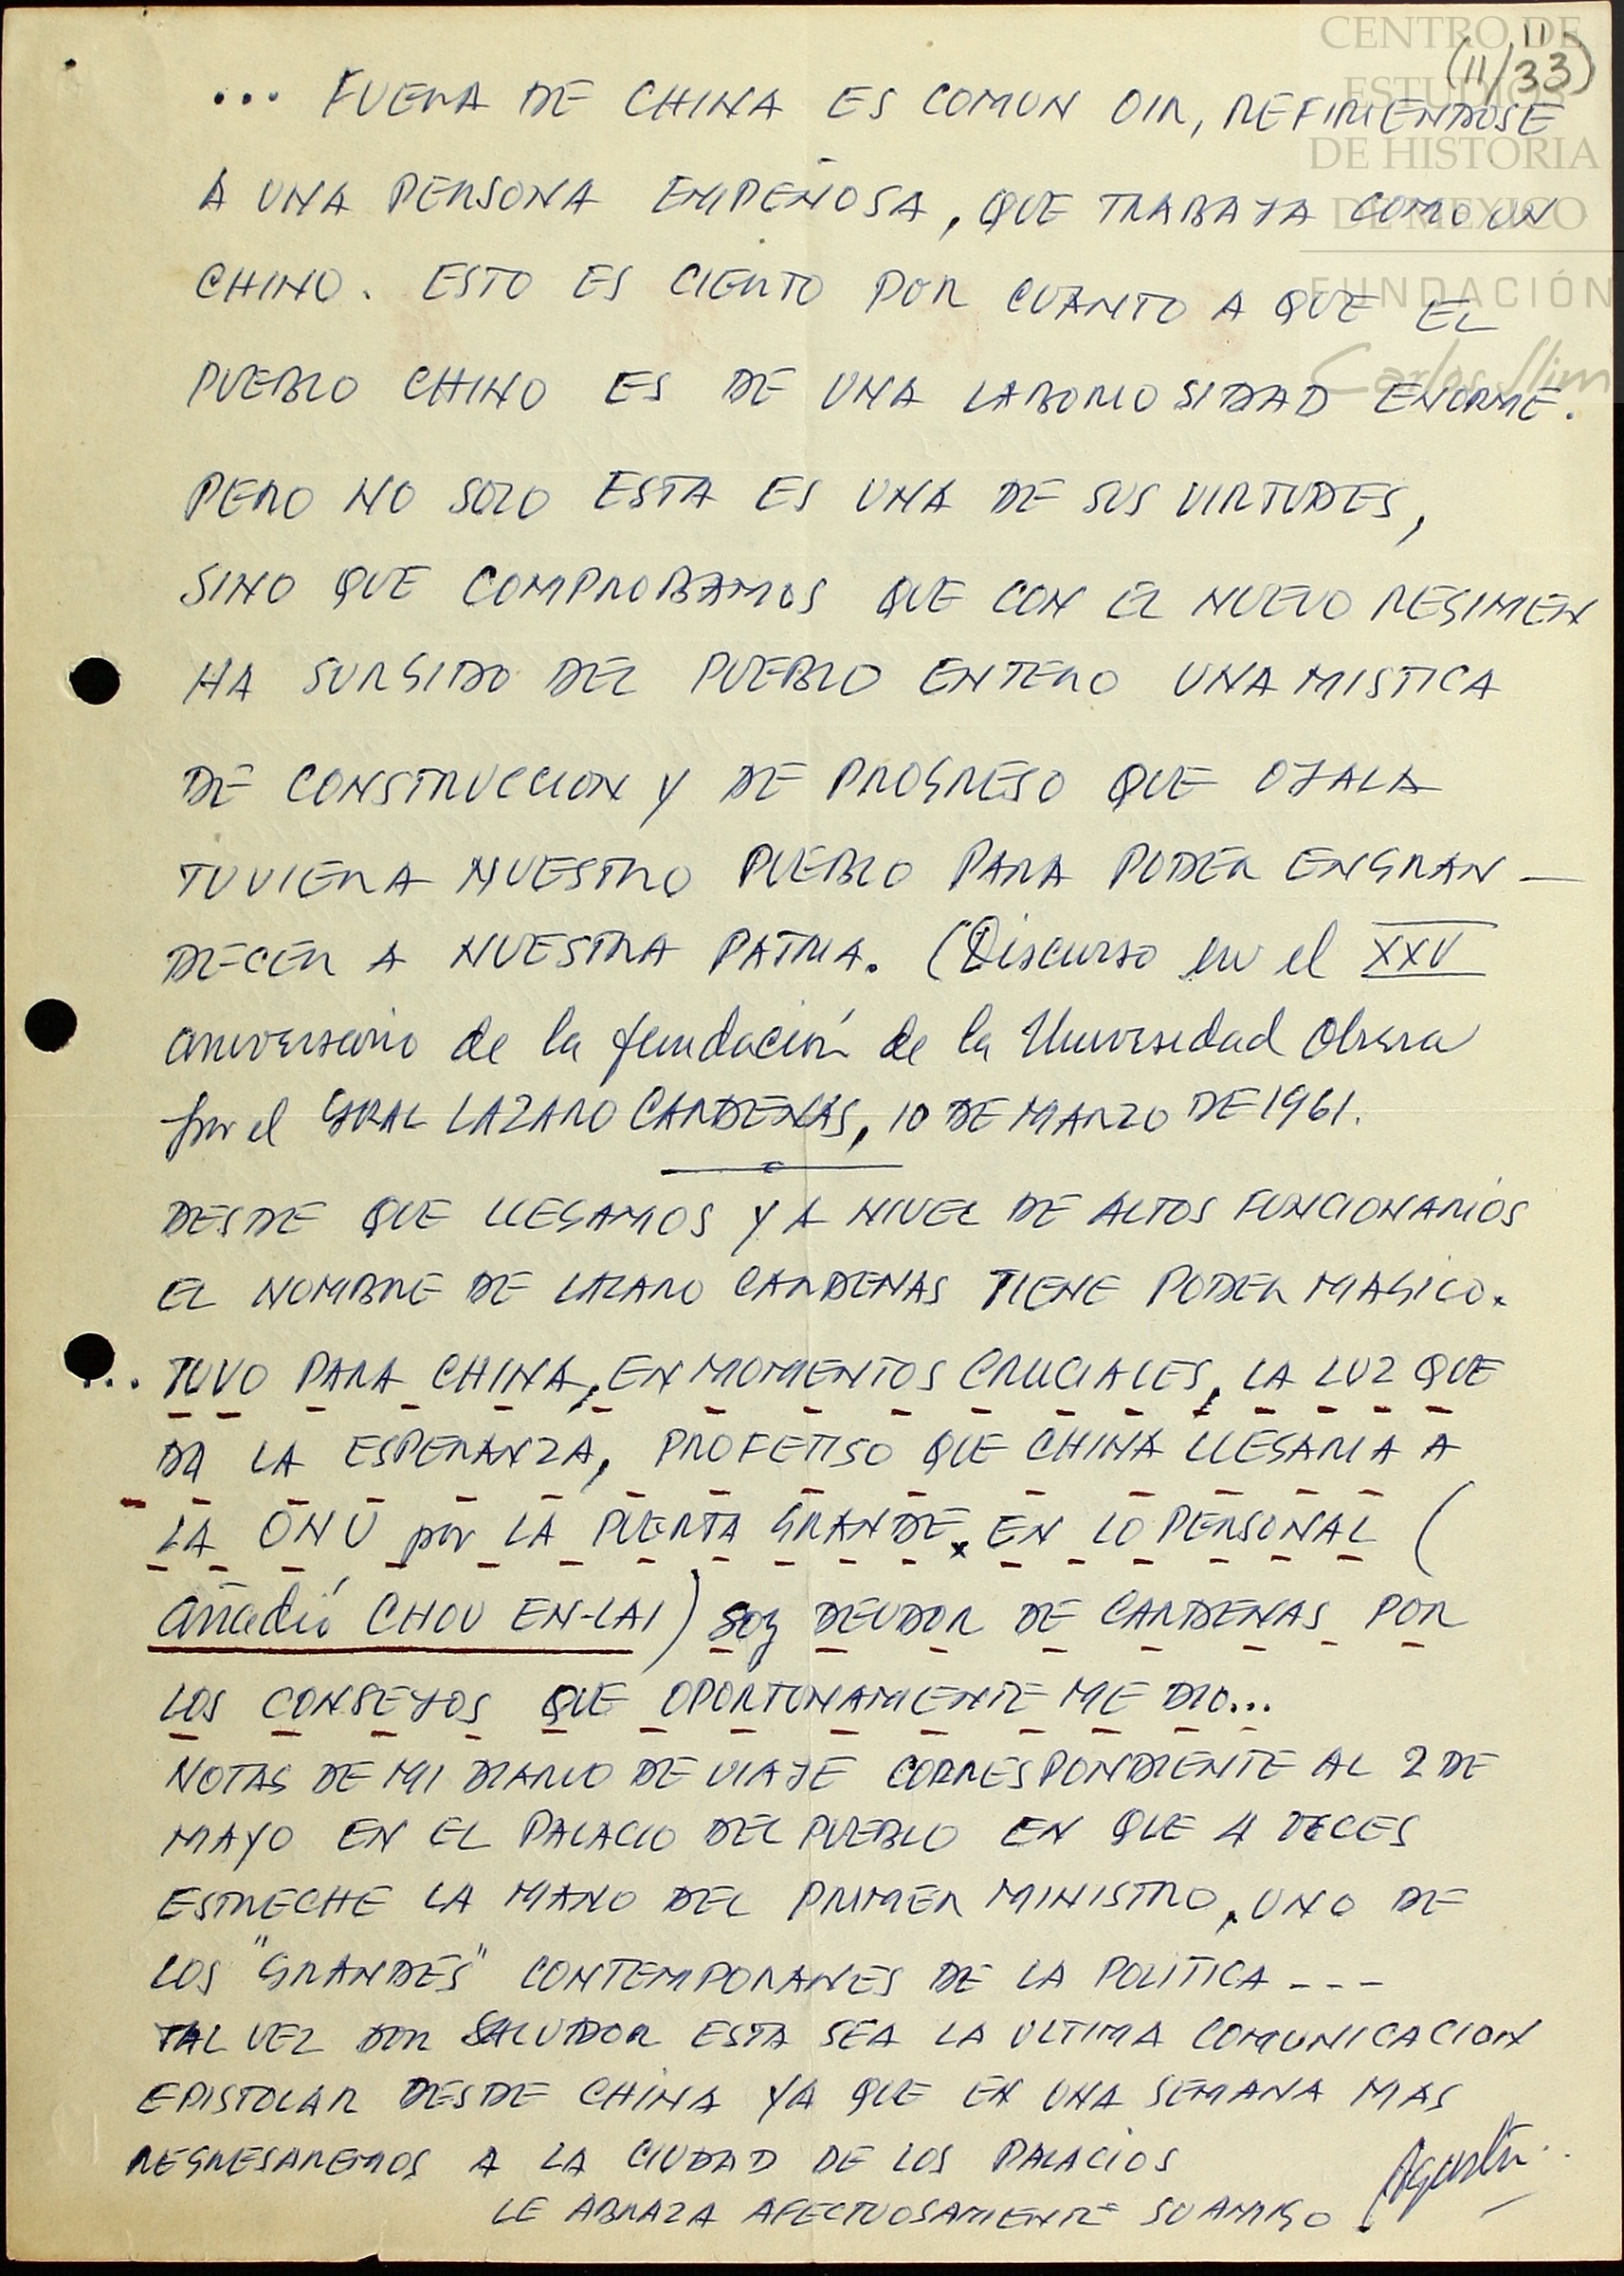 CENTRO DE
ESTUDIOS
DE HISTORIA
DE MEXICO
FUNDACIÓN
Carlos Slim
11
(11/33)
... FUERA DE CHINA ES COMUN OIR, REFIRIENDOSE
A UNA PERSONA EMPEÑOSA, QUE TRABAJA COMO UN
CHINO. ESTO ES CIERTO POR CUANTO A QUE EL
PUEBLO CHINO ES DE UNA LABORIOSIDAD ENORME.
PERO NO SOLO ESTA ES UNA DE SUS VIRTUDES,
SINO QUE COMPROBAMOS QUE CON EL NUEVO REGIMEN
HA SURGIDO DEL PUEBLO ENTERO UNA MISTICA
DE CONSTRUCCION Y DE PROGRESO QUE OJALA
TUVIERA NUESTRO PUEBLO PARA PODER ENGRAN-
DECER A NUESTRA PATRIA. (Discurso en el XXV
aniversario de la fundación de la Universidad Obrera
por el GRAL LAZARO CARDENAS, 10 DE MARZO DE 1961.
DESDE QUE LLEGAMOS Y A NIVEL DE ALTOS FUNCIONARIOS
EL NOMBRE DE LAZARO CARDENAS TIENE PODER MAGICO.
... TUVO PARA CHINA, EN MOMENTOS CRUCIALES, LA LUZ QUE
DA LA ESPERANZA, PROFETISO QUE CHINA LLEGARIA A
LA ONU por LA PUERTA GRANDE. EN LO PERSONAL (
añadió CHOU EN-LAI) soy DEUDOR DE CARDENAS POR
LOS CONSEJOS QUE OPORTUNAMENTE ME DIO...
NOTAS DE MI DIARIO DE VIAJE CORRESPONDIENTE AL 2 DE
MAYO EN EL PALACIO DEL PUEBLO EN QUE 4 VECES
ESTRECHE LA MANO DEL PRIMER MINISTRO, UNO DE
LOS "GRANDES" CONTEMPORANES DE LA POLITICA ---
TAL VEZ DON SALVADOR ESTA SEA LA ULTIMA COMUNICACION
EPISTOLAR DESDE CHINA YA QUE EN UNA SEMANA MAS
REGRESAREMOS A LA CIUDAD DE LOS PALACIOS
LE ABRAZA AFECTUOSAMENTE SU AMIGO.
Agustín